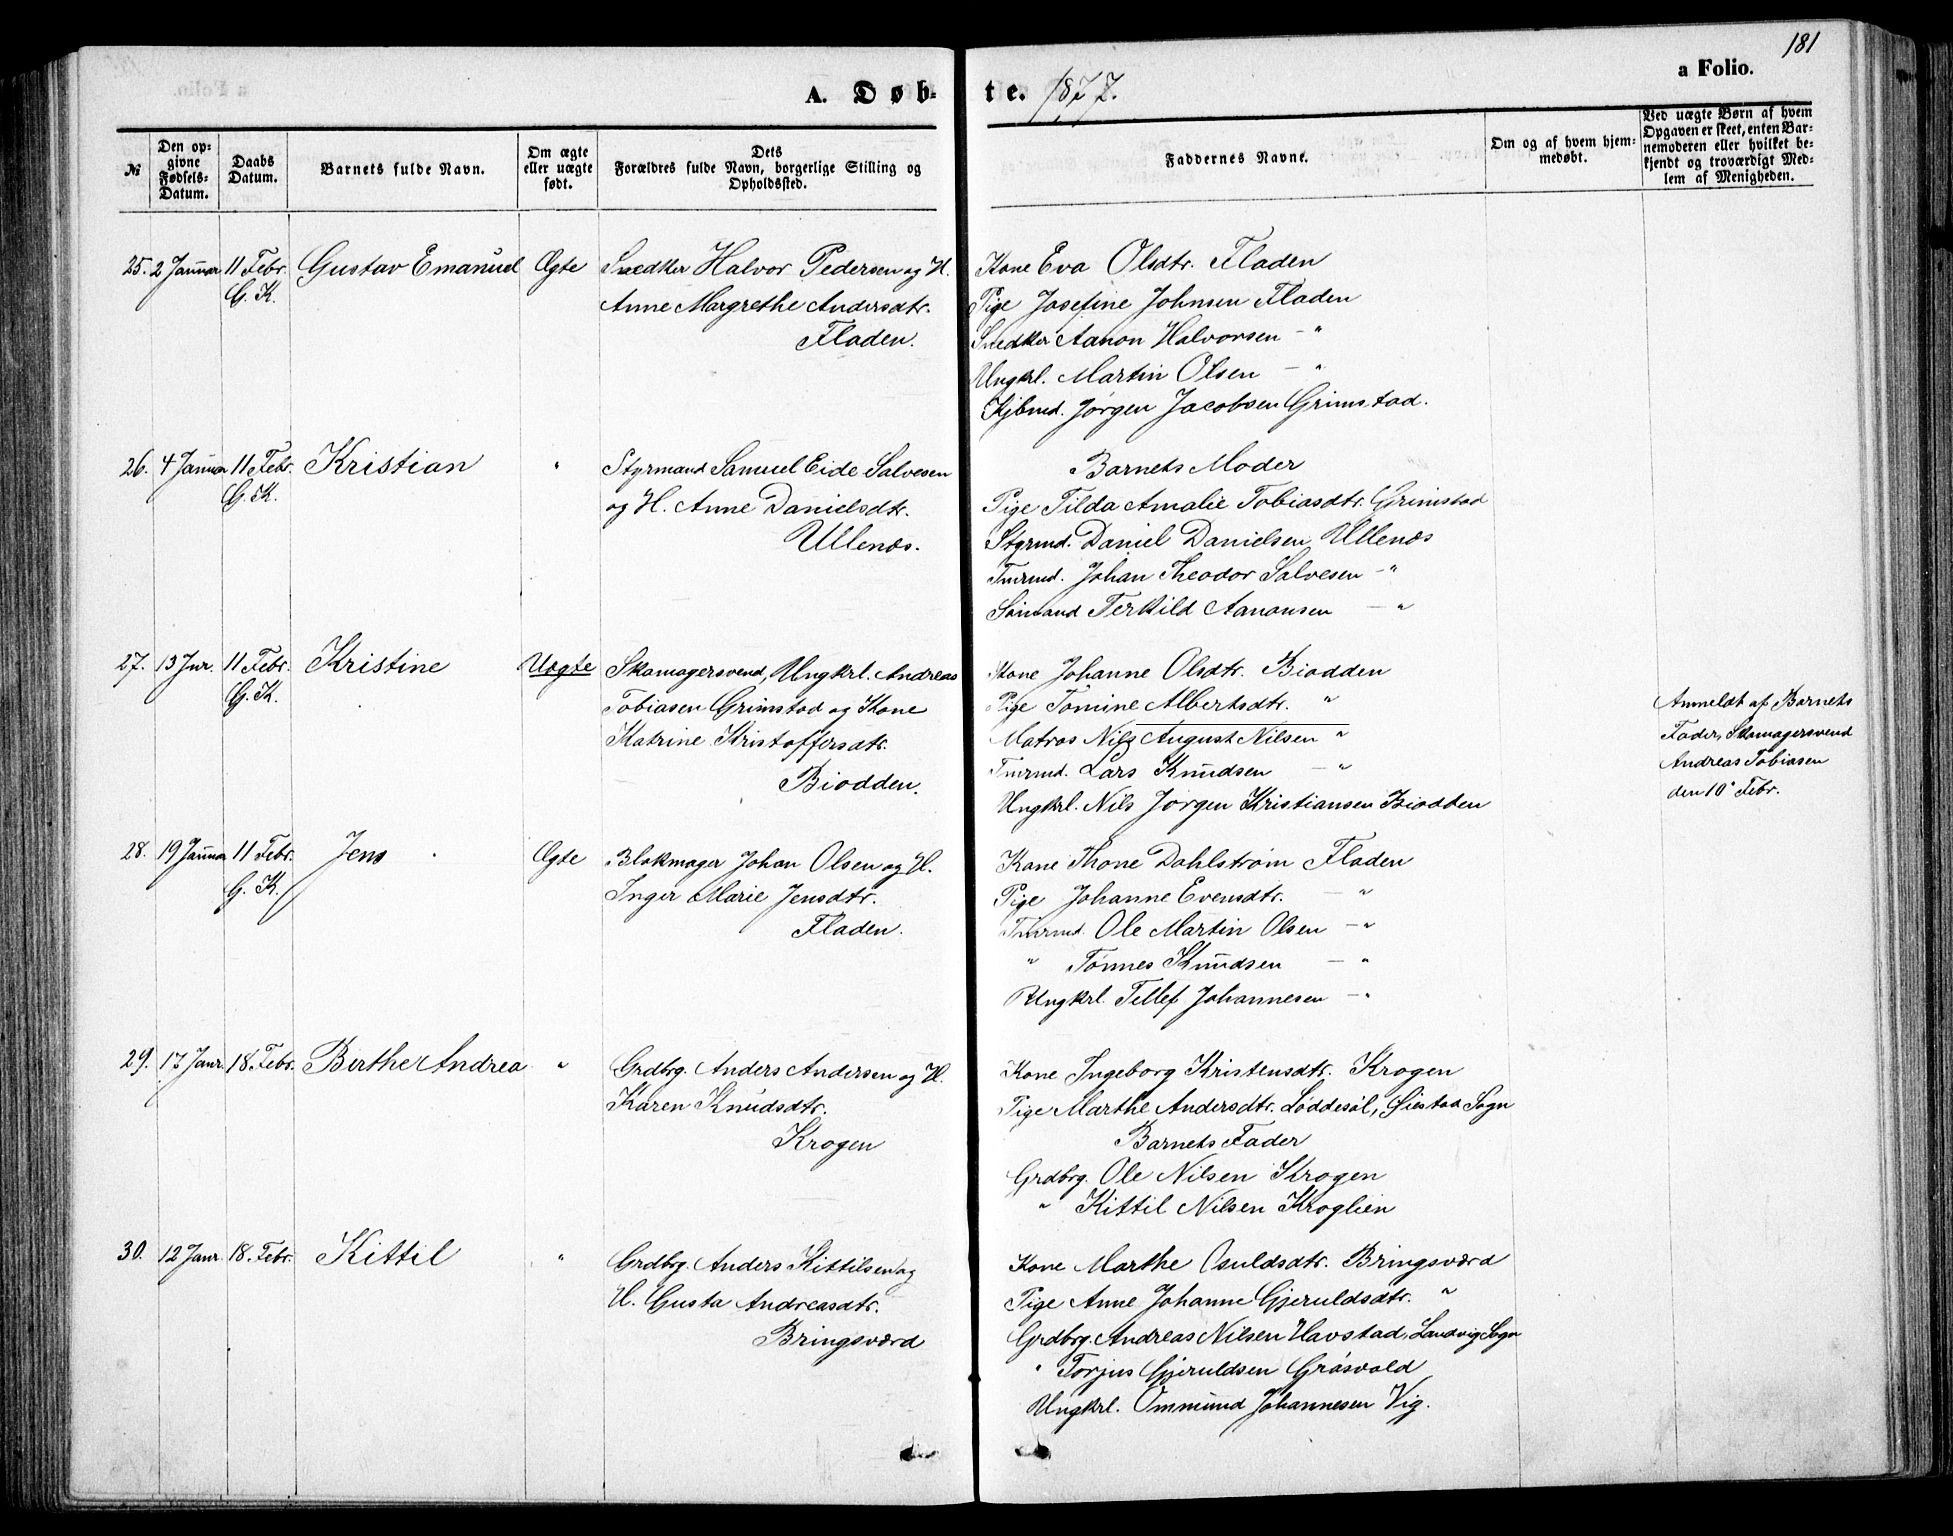 181
a Folio.
A. Døb-te. 1877.
№
Den op-
givne
Fødsels-
Datum.
Daabs
Datum.
Barnets fulde Navn.
Om ægte
eller uægte
født.
Dets
Forældres fulde Navn, borgerlige Stilling og
Opholdssted.
Faddernes Navne.
Om og af hvem hjem-
medøbt.
Ved uægte Børn af hvem
Opgaven er skeet, enten Bar-
nemoderen eller hvilket be-
kjendt og troværdigt Med-
lem af Menigheden.
25. 2 Januar 11 Febr. Gustav Emanuel Ægte Snedker Halvor Pedersen og H.
G. K. Anne Margrethe Andersdtr.
Fladen.
Kone Eva Olsdtr. Fladen
Pige Josefine Johnsen Fladen
Snedker Aanon Halvorsen – "
Ungkrl. Martin Olsen – "
Kjbmd. Jørgen Jacobsen Grimstad.
26. 4 Januar 11 Febr. Kristian " Styrmand Samuel Eide Salvesen
G. K. og H. Anne Danielsdtr.
Ullenæs.
Barnets Moder
Pige Tilda Amalie Tobiasdtr. Grimstad
Styrmd. Daniel Danielsen Ullenæs
Tmrmd. Johan Theodor Salvesen – "
Sømand Terkild Aanonsen – "
27. 13 Jnr. 11 Febr. Kristine Uægte Skomagersvend, Ungkrl. Andreas
G. K. Tobiasen Grimstad og Kone
Katrine Kristoffersdtr.
Biodden.
Kone Johanne Olsdtr. Biodden
Pige Tomine Albertsdtr. "
Matros Nils August Nilsen "
Tmrmd. Lars Knudsen – "
Ungkrl. Nils Jørgen Kristiansen Biodden
Anmeldt af Barnets
Fader, Skomagersvend
Andreas Tobiasen
den 10de Febr.
28. 19 Januar 11 Febr. Jens Ægte Blokmager Johan Olsen og H.
G. K. Inger Marie Jensdtr.
Fladen.
Kone Thone Dahlstrøm Fladen
Pige Johanne Evensdtr. – "
Tmrmd. Ole Martin Olsen – "
" Tønnes Knudsen – "
Ungkrl. Tellef Johannesen – "
29. 17 Janr. 18 Febr. Birthe Andrea " Grdbrg. Anders Andersen og H.
Karen Knudsdtr.
Krogen
Kone Ingeborg Kristensdtr. Krogen
Pige Marthe Andersdtr. Løddesøl, Øiestad Sogn
Barnets Fader
Grdbrg. Ole Nilsen Krogen
" Kittil Nilsen Kroglien
30. 12 Janr. 18. Febr. Kittil " Grdbrg. Anders Kittilsen og
H. Gusta Andreasdtr.
Bringsværd
Kone Marthe Osuldsdtr. Bringsværd
Pige Anne Johanne Gjeruldsdtr. "
Grdbrg. Andreas Nilsen Havstad, Landvig Sogn
" Torjus Gjeruldsen Gråsvold
Ungkrl. Ommund Johannesen Vig.